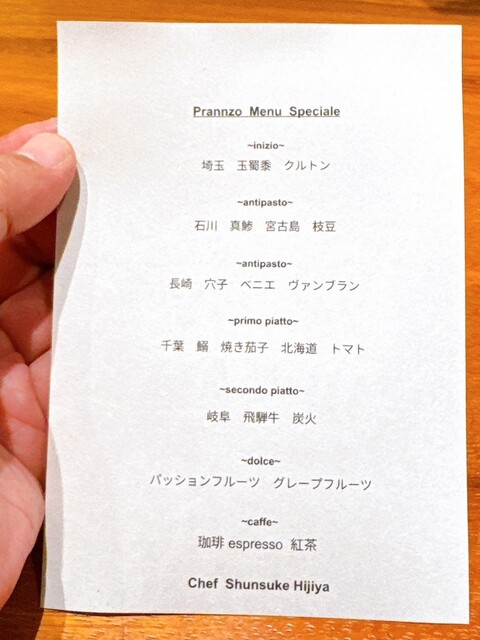 Prannzo Menu Speciale
~inizio~
埼玉 玉蜀黍 クルトン
~antipasto~
石川 真鯵 宮古島 枝豆
~antipasto~
長崎 穴子 ベニエ ヴァンブラン
~primo piatto~
千葉 鰯 焼き茄子 北海道 トマト
~secondo piatto~
岐阜 飛騨牛 炭火
~dolce~
パッションフルーツ グレープフルーツ
~caffe~
珈琲 espresso 紅茶
Chef Shunsuke Hijiya